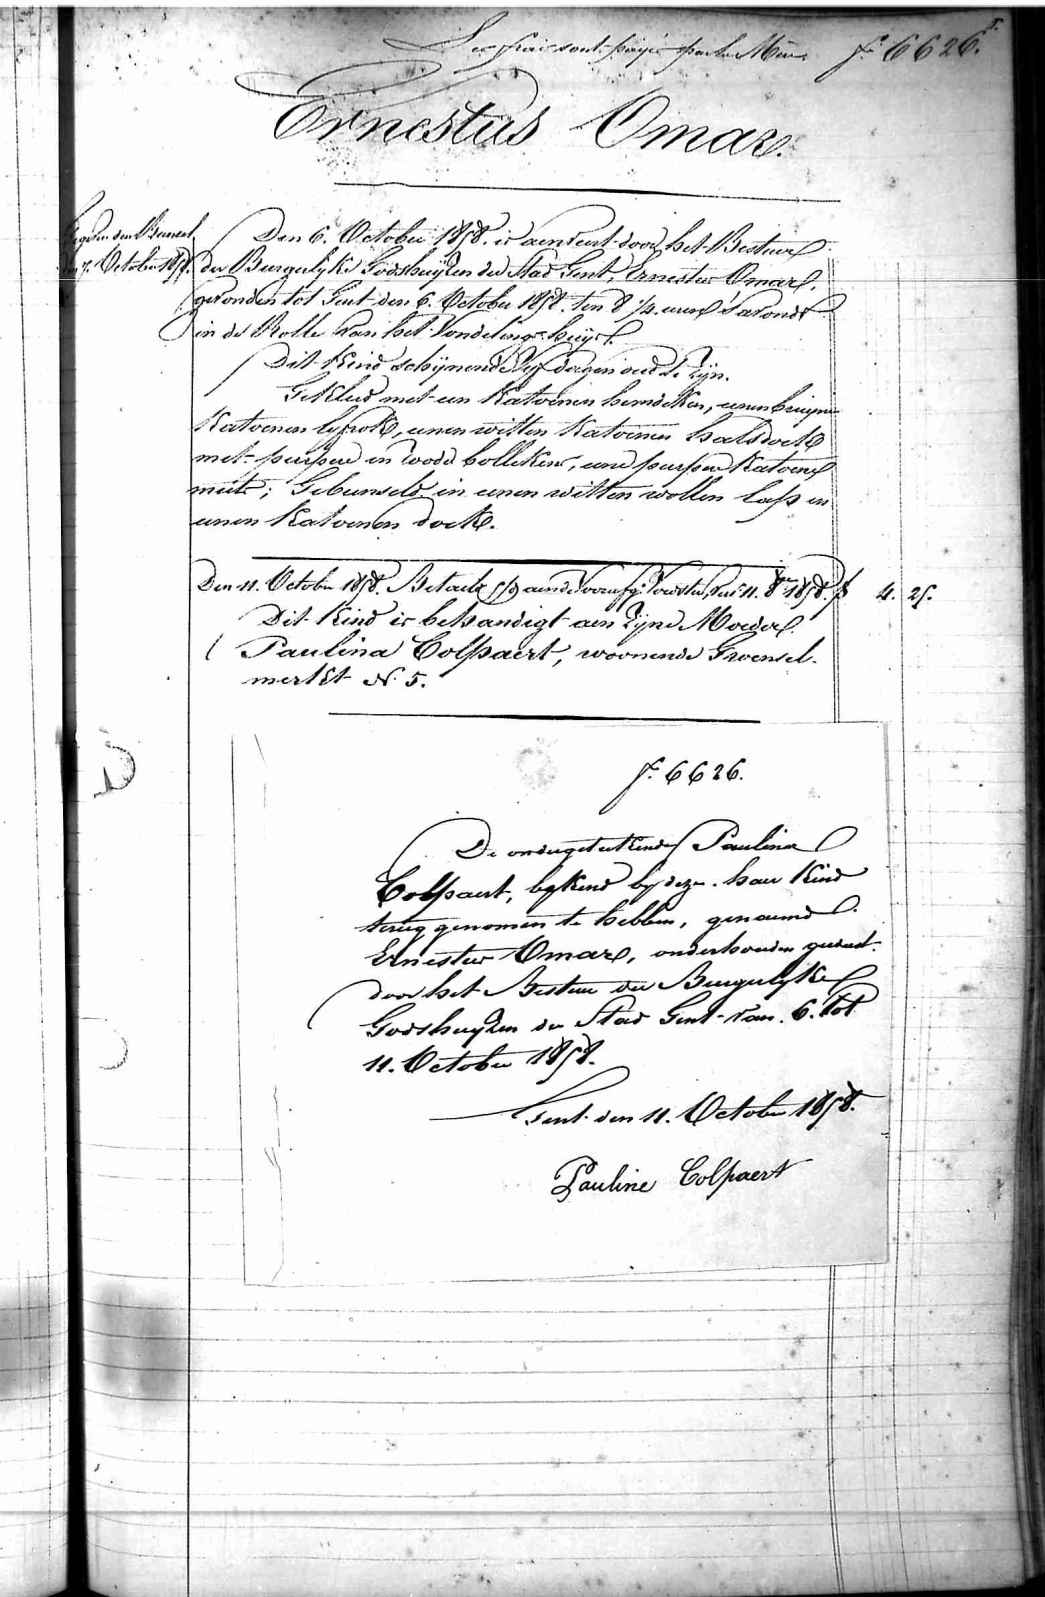 Les frais sont payés par la Mère. f° 6626.
Ernestus Omar.
den Bureel
7. October 1858.
Den 6. October 1858. is aenveert door het Bestuur
der Burgerlyke Godshuyzen der Stad Gent, Ernestus Omar,
gevonden tot Gent den 6. October 1858. ten 8 1/4 uren 's avonds
in de Rolle van het Vondelinge-huys.
Dit kind schijnende vyf dagen oud te zyn.
Gekleed met een Katoenen hemdeken, eenen bruynen
Katoenen lyfrok, eenen witten Katoenen halsdoek
met purper en roode bollekens, eene purper Katoene
muts; Gebunseld in eenen witten wollen lap en
eenen Katoenen doek.
Den 11. October 1858. Betaelt aen de Voorz. 11. 8bre 1858. f 4. 25.
Dit Kind is behandigt aen zyne Moeder
Paulina Colpaert, woonende Groensel-
merkt N. 5.
f° 6626.
De ondergeteekende Paulina
Colpaert, bekend by deze haer kind
terug genomen te hebben, genaemd
Ernestus Omar, onderhouden geweest
door het Bestuur der Burgerlyke
Godshuyzen der Stad Gent van 6. tot
11. October 1858.
Gent den 11. October 1858.
Pauline Colpaert